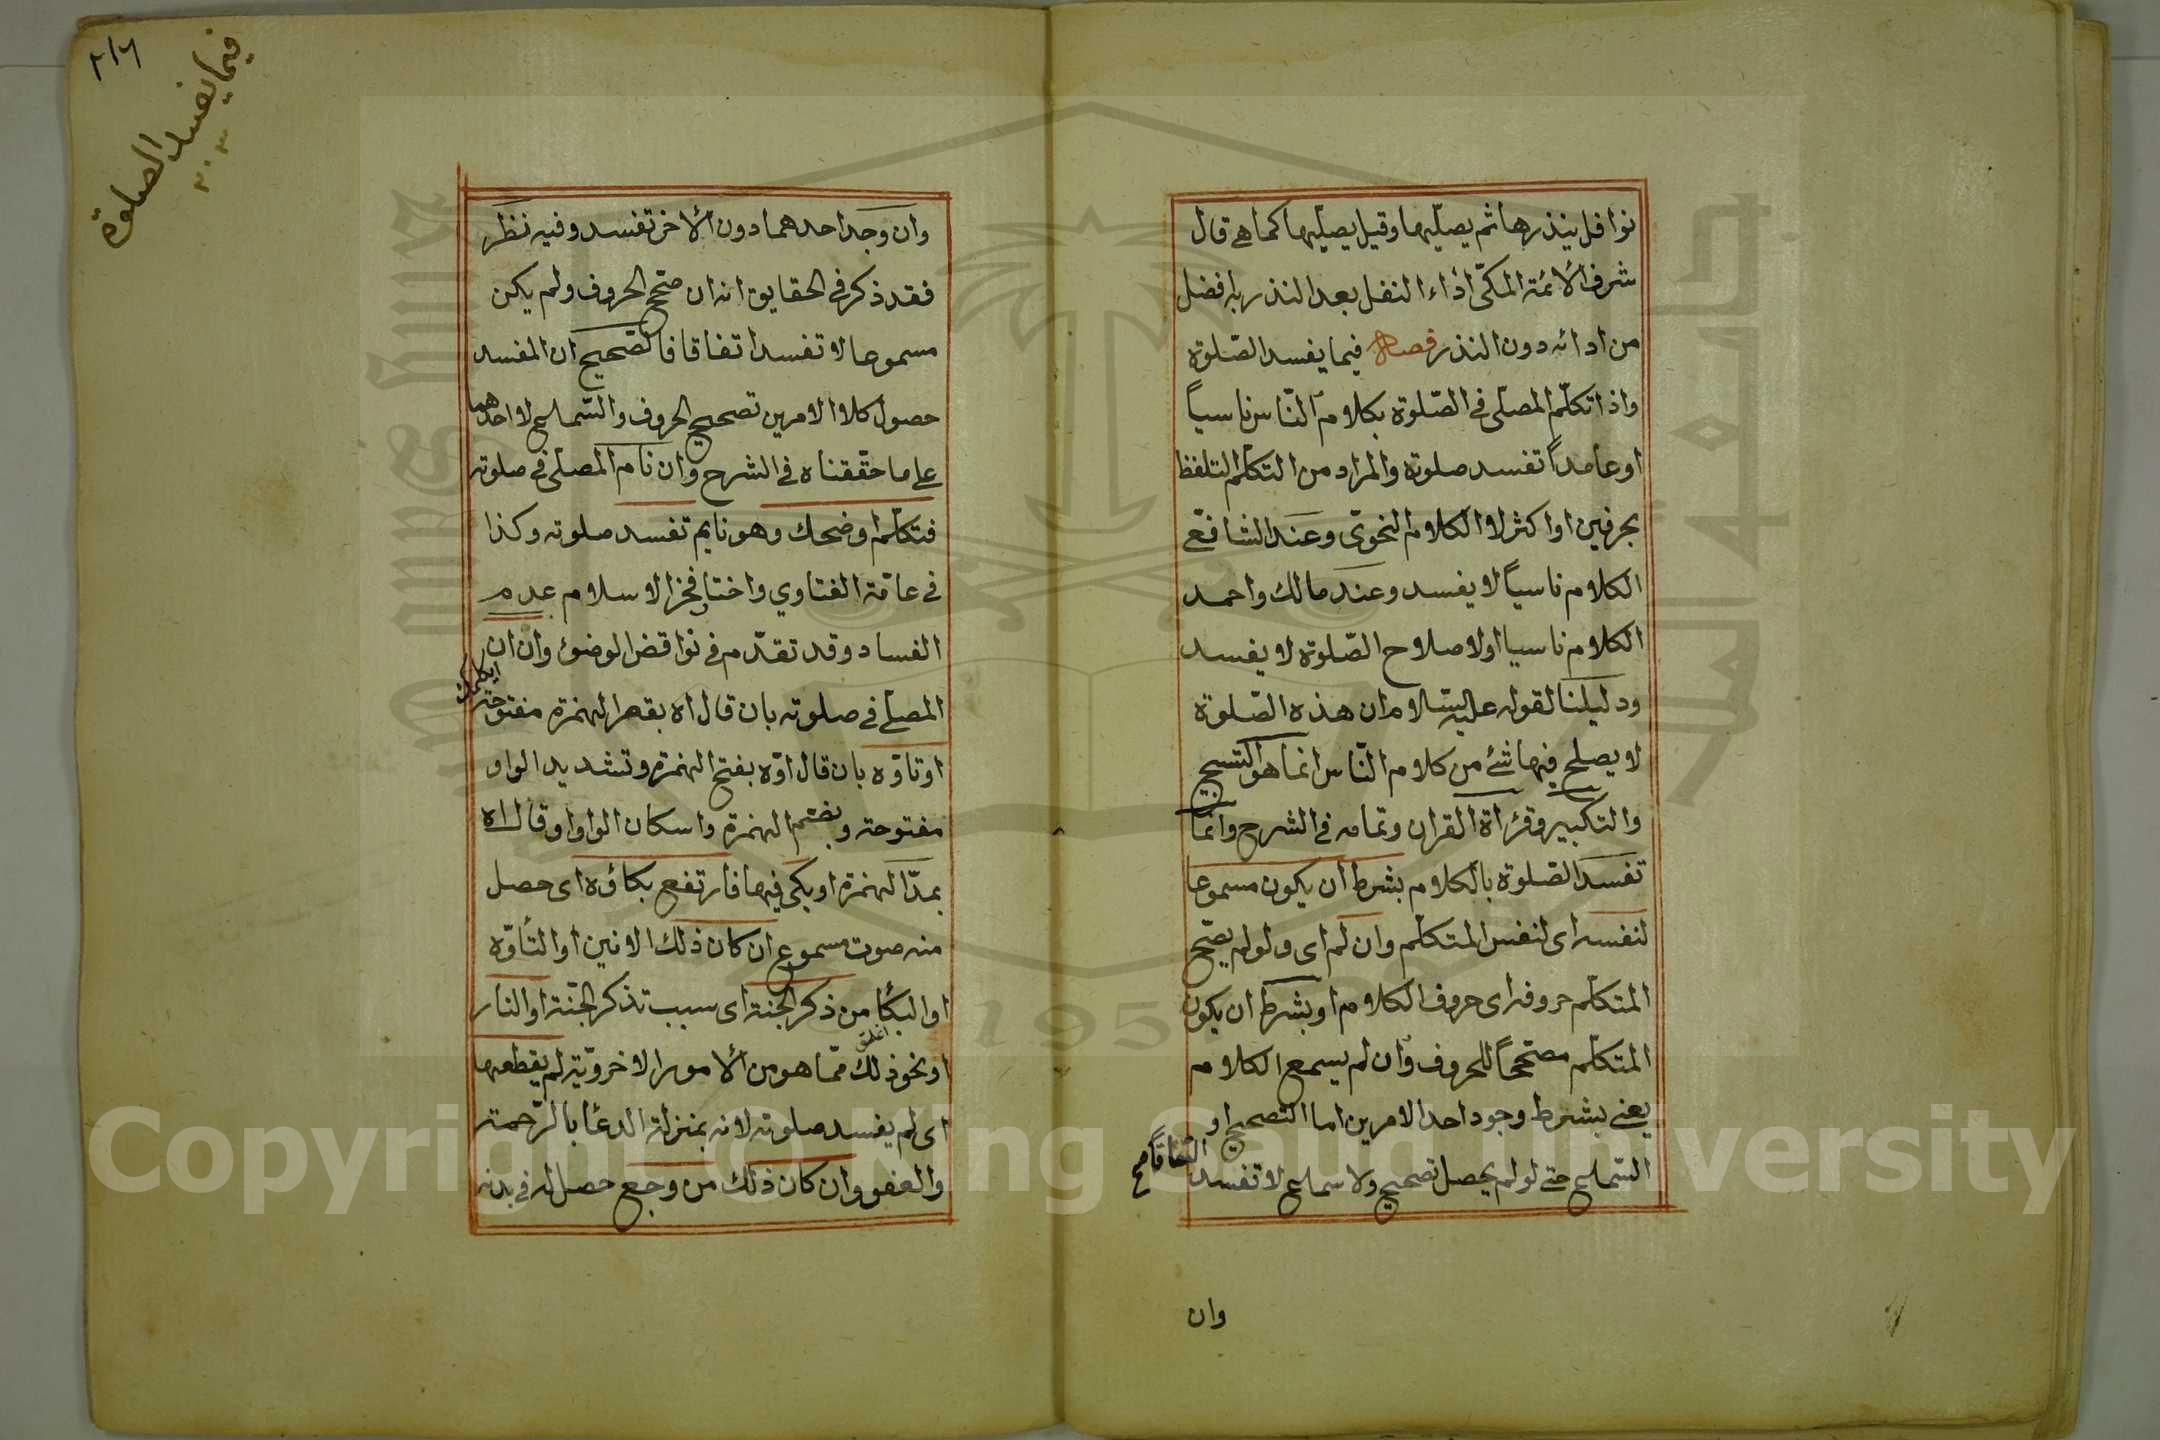 نوافل ينذرها ثم يصليها وقيل يصليها كما هي قال
شرف الأئمة المكّى أداء النفل بعد النذر به افضل
من ادائه دون النذر فصل فيما يفسد الصّلوة
واذا تكلّم المصلى فى الصّلوة بكلام النّاس ناسياً
او عامداً تفسد صلوته والمراد من التكلم التلفظ
بحرفين او اكثر لا الكلام النحوىّ وعند الشافعى
الكلام ناسياً لا يفسد وعند مالك واحمد
الكلام ناسيا او لاصلاح الصّلوة لا يفسد
ودليلنا لقوله عليه السّلام ان هذه الصّلوة
لا يصلح فيها شئ من كلام النّاس انما هو التسبيح
والتكبير وقرأة القران وتمامه فى الشرح وانّما
تفسد الصّلوة بالكلام بشرط أن يكون مسموعا
لنفسه اى لنفس المتكلم وان لم اى ولو لم يصحّح
المتكلّم حروفه اى حروف الكلام او بشرط ان يكون
المتكلّم مصحّحاً للحروف وان لم يسمع الكلام
يعنى بشرط وجود احد الامرين اما التصحيح او
السّماع حتى لو لم يحصل تصحيح ولا سماع لا تفسد
اتفاقا صح
وان
٢١٦
فيما يفسد الصلوة
وان وجد احدهما دون الأخر تفسد وفيه نظر
فقد ذكر فى الحقايق انه ان صحّح الحروف ولم يكن
مسموعا لا تفسد اتفاقا فالصّحيح ان المفسد
حصول كلا الامرين تصحيح الحروف والسّماع لا احدهما
على ما حقّقناه فى الشرح وان نام المصلّى فى صلوته
فتكلّم او ضحك وهو نايم تفسد صلوته وكذا
فى عامّة الفتاوي واختار فخر الاسلام عدم
الفساد وقد تقدّم فى نواقض الوضوء وان ان
المصلّى فى صلوته بان قال اه بقصر الهمزة مفتوحة
او تاوّه بان قال اوّه بفتح الهمزة وتشديد الواو
مفتوحة وبضم الهمزة واسكان الواو او قال اه
بمدّ الهمزة او بكى فيها فارتفع بكاؤه اى حصل
منه صوت مسموع ان كان ذلك الانين او التأوّه
او البكأ من ذكر الجنة اى سبب تذكر الجنّة او النار
او نحو ذلك ممّا هو من الأمور الاخرويّة لم يقطعها
اى لم يفسد صلوته لانه بمنزلة الدعا بالرّحمة
والعفو وان كان ذلك من وجع حصل له فى بدنه
Copyright © King Saud University
1957